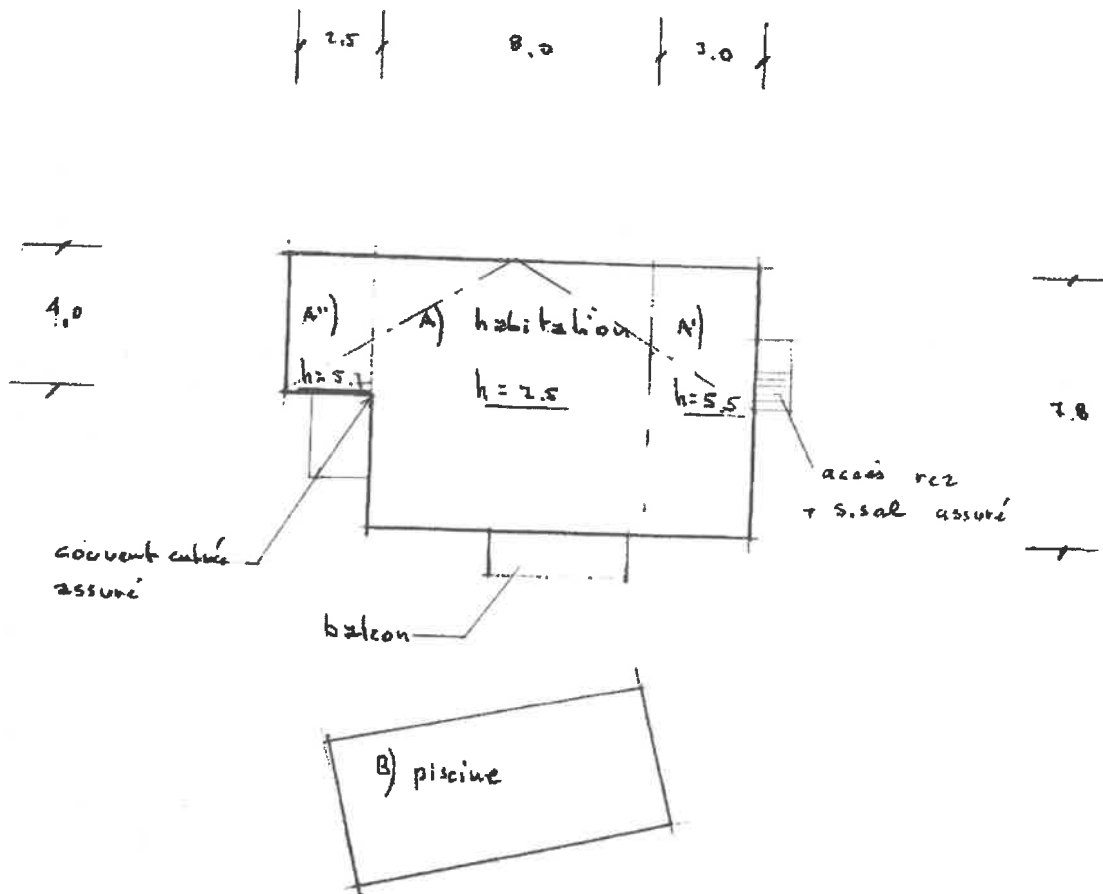 2.5 8.0 3.0
4.0
A") A) habitation A')
h=5. h = 7.5 h=5.5
7.8
accès rez
+ s.sol assuré
couvert entrée
assuré
balcon
B) piscine